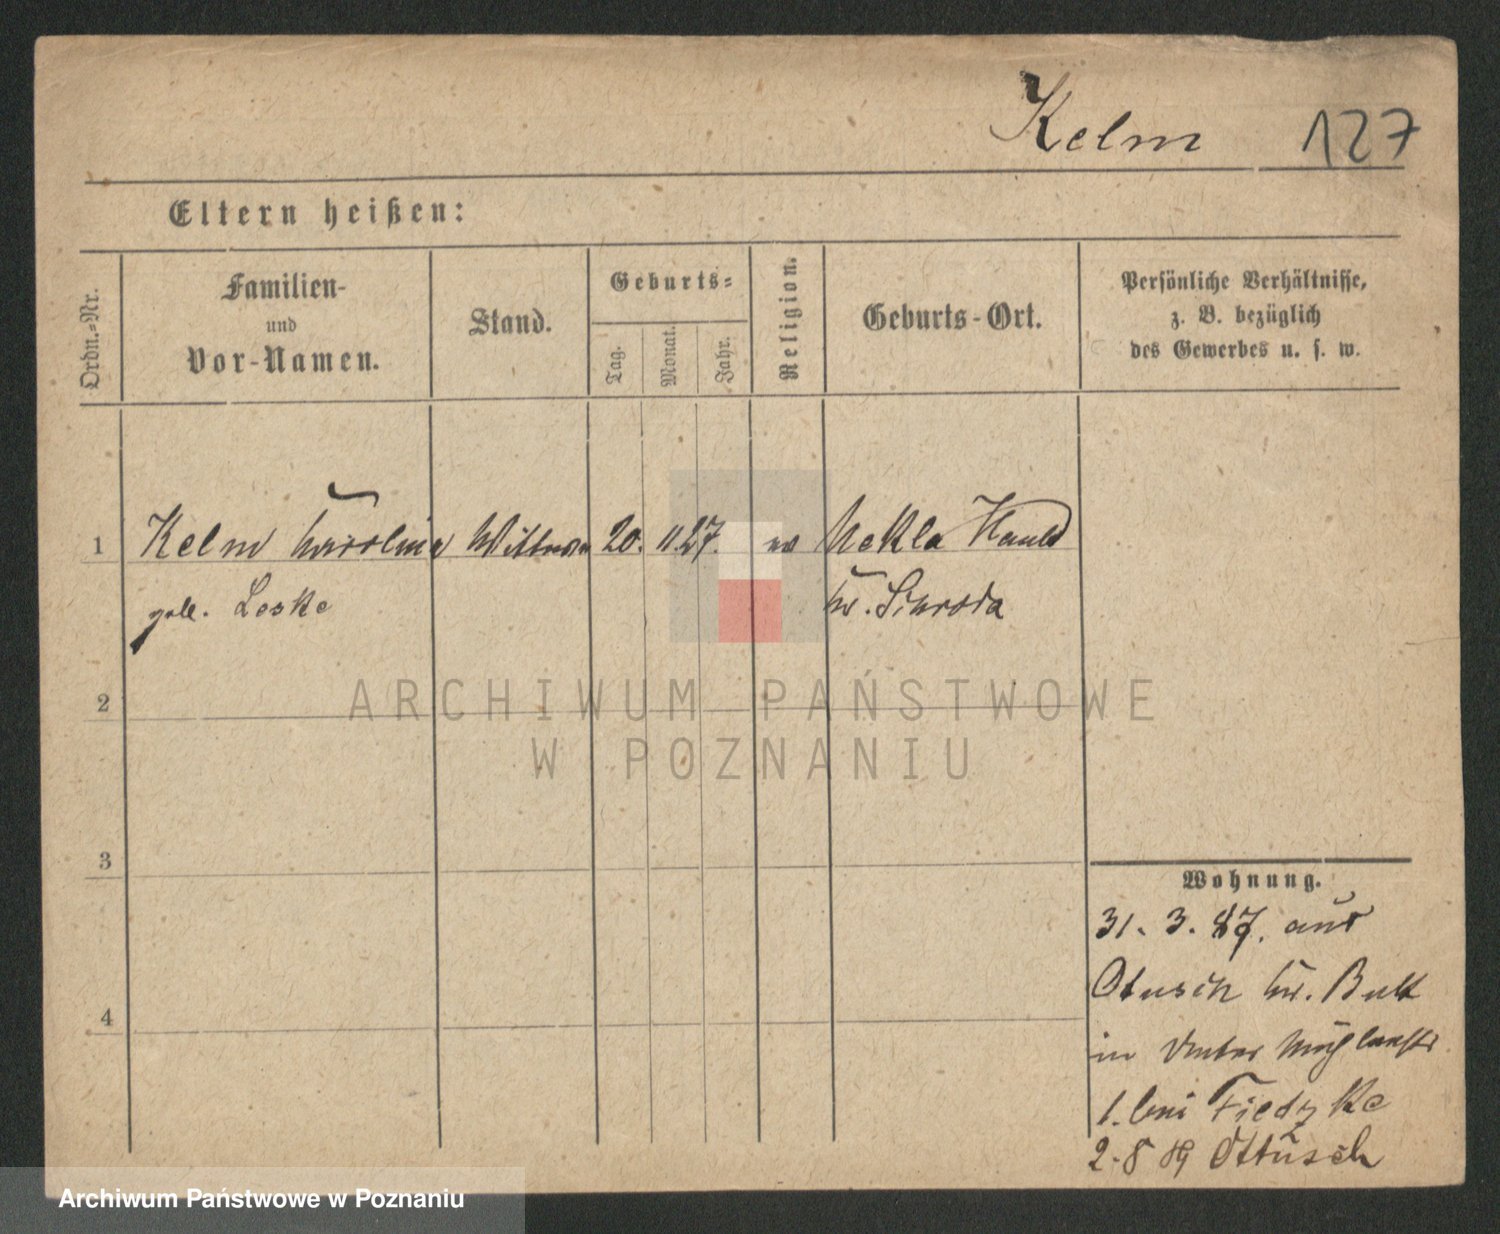 Kelm 127
Eltern heißen:
Ordn.=Nr.
Familien-
und
Vor-Namen.
Stand.
Geburts=
Tag.
Monat.
Jahr.
Religion.
Geburts-Ort.
Persönliche Verhältnisse,
z. B. bezüglich
des Gewerbes u. s. w.
1 Kelm Karolina Wittwe 20. 11. 27. ev Nekla Hauld
geb. Leske Kr. Schroda
2
3
4
Wohnung.
31. 3. 87. aus
Otusch Kr. Buk
in Unter
1. bei Fiedzke
2. 8 89 Ottusch
ARCHIWUM PAŃSTWOWE
W POZNANIU
Archiwum Państwowe w Poznaniu